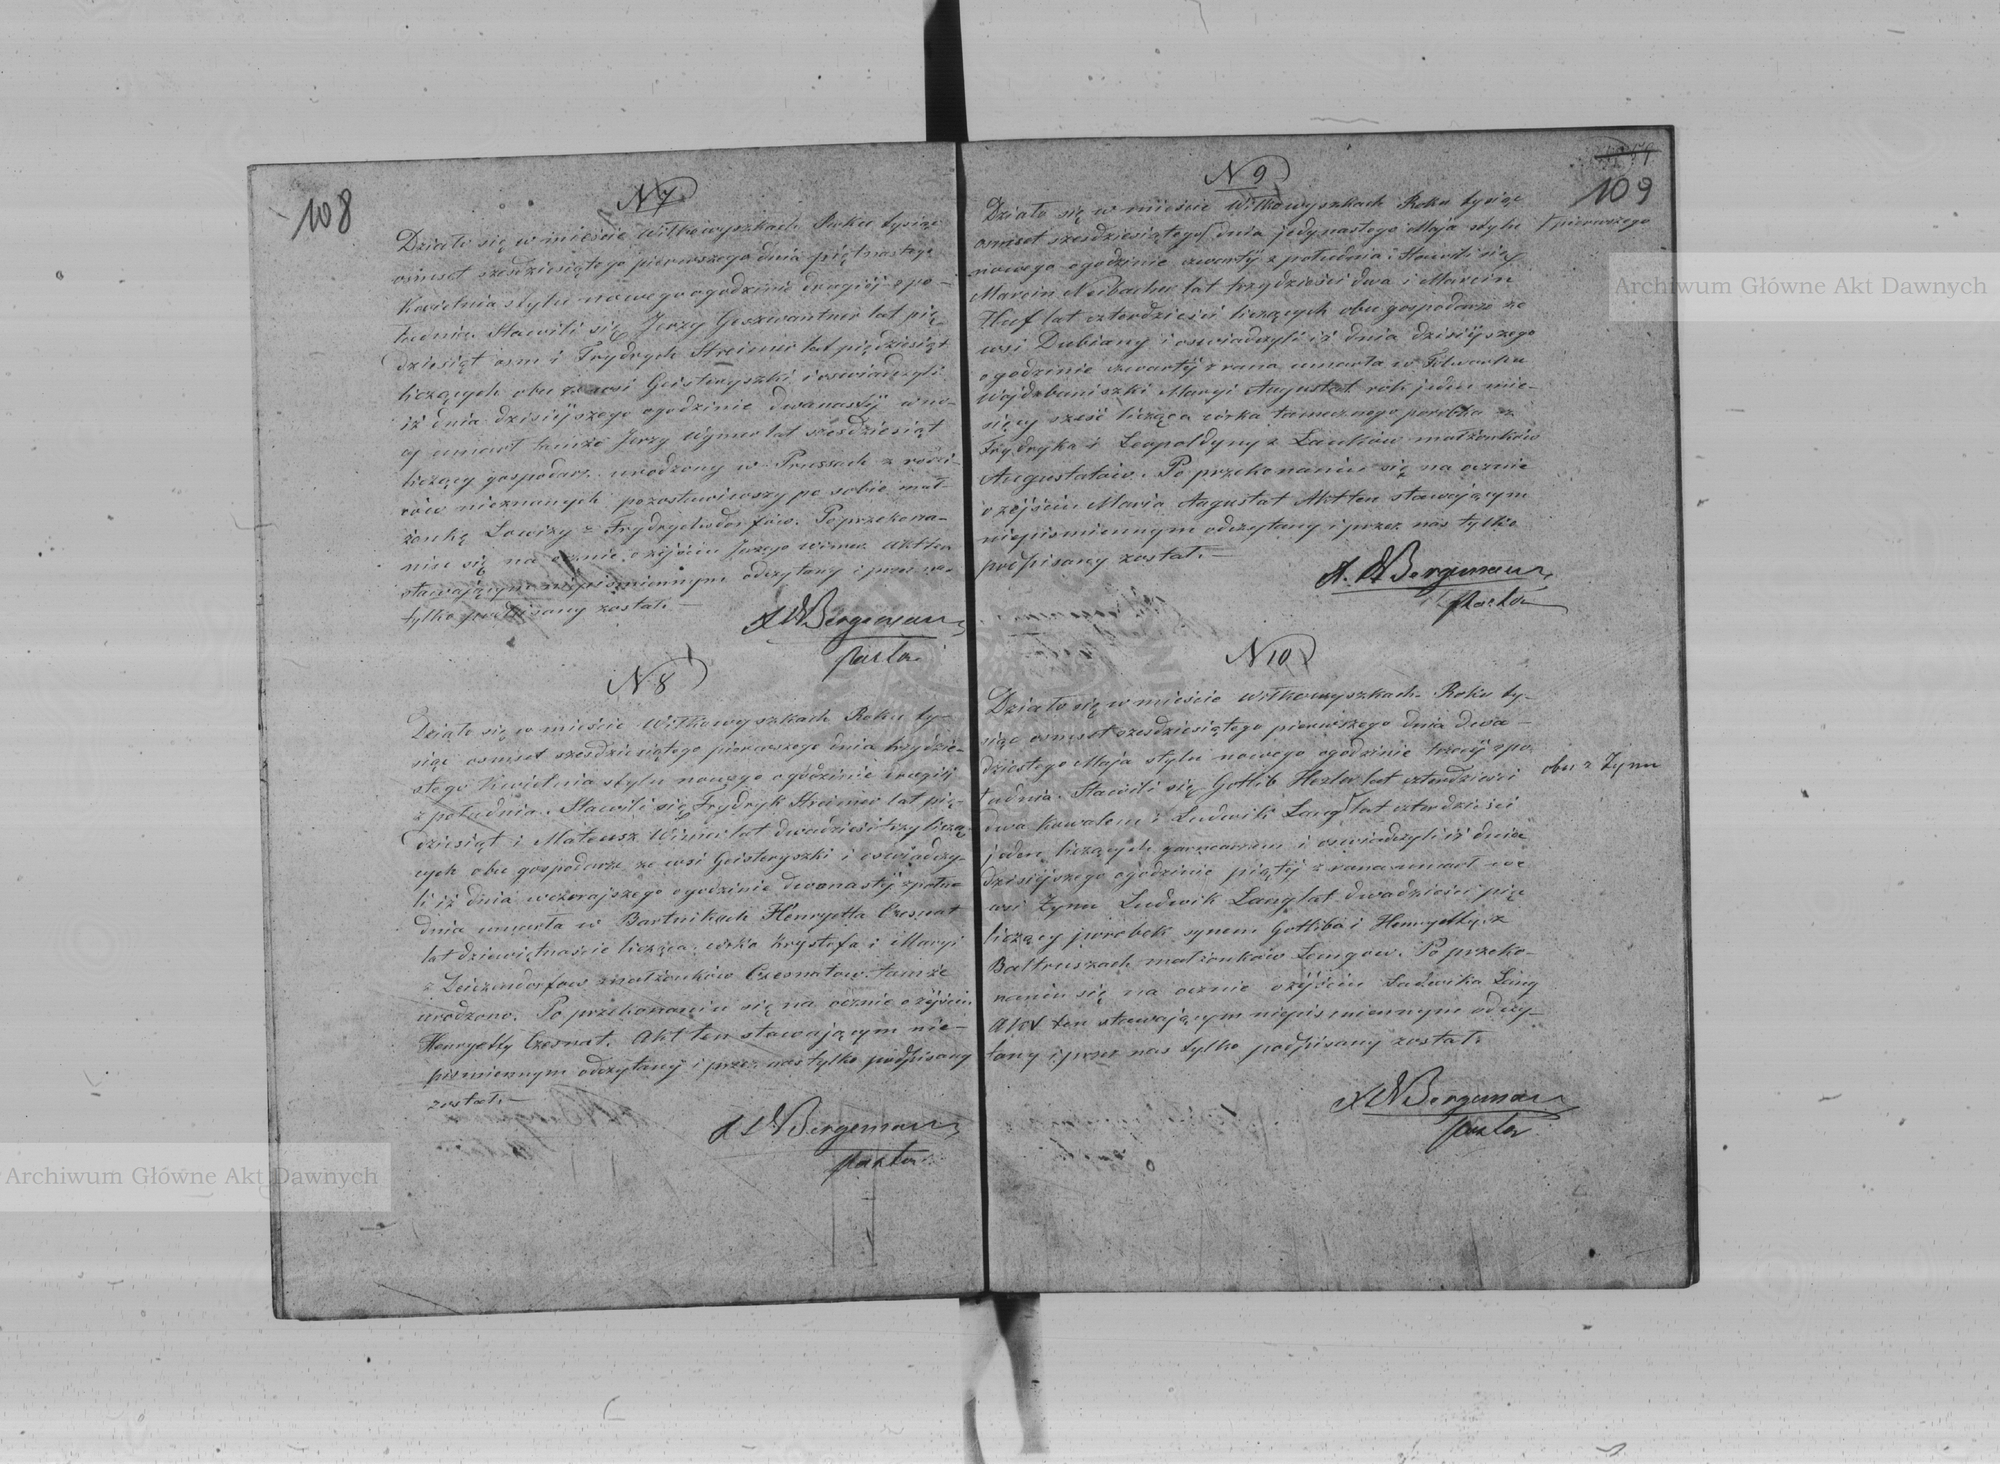 108
N 7
Działo się w mieście Wiłkowyszkach Roku tysiąc
osmset sześdziesiątego pierwszego dnia piętnastego
Kwietnia stylu nowego ogodzinie drugiéj z po-
łudnia. Stawili się Jerzy Geszwantner lat pię-
dziesiąt osm i Frydrych Streimer lat piędziesiąt
liczących obu ze wsi Geisteryszki i oswiadczyli
iż dnia dzisiejszego ogodzinie dwanastéj w no-
cy umarł tamże Jerzy Wymer lat sześdziesiąt
liczący gospodarz urodzony w Prussach z rodzi-
ców nieznanych pozostawiwszy po sobie mał-
żonkę Lowizy z Frydrychsdorfów. Po przekona-
niu się na ocznie o zejściu Jerzego Wimer Akt ten
stawającym niepismiennym odczytany i przez nas
tylko podpisany został. —
Bergeman
pastor
N 8
Działo się w mieście Wiłkowyszkach Roku ty-
siąc osmset sześdziesiątego pierwszego dnia trzydzie-
stego Kwietnia stylu nowego ogodzinie drugiéj
z południa. Stawili się Frydryk Streimer lat pię-
dziesiąt i Mateusz Wimer lat dwadzieścia trzy liczą-
cych obu gospodarze ze wsi Geisteryszki i oswiadczy-
li iż dnia wczorajszego ogodzinie dwanastéj z połu-
dnia umarła w Bartnikach Henryetta Czesnat
lat dziewiętnaście licząca, córka Krysztofa i Maryi
małżonków Czesnatow tamże
urodzona. Po przekonaniu się na ocznie o zejściu
Henryetty Czesnat. Akt ten stawającym nie-
pismiennym odczytany i przez nas tylko podpisany
został. —
Bergeman
pastor
109
N 9
Działo się w mieście Wiłkowyszkach Roku tysiąc
osmset sześdziesiątego dnia jedynastego Maja stylu
pierwszego
nowego ogodzinie czwartéj z południa. Stawili się
Marcin Neibacher lat trzydzieści dwa i Marcin
Huf lat czterdzieści liczących obu gospodarze ze
wsi Dubiany i oswiadczyli iż dnia dzisiejszego
ogodzinie czwartéj z rana umarła w Folwarku
Wojdzbaniszki Maryi Augustat rok jeden mie-
sięcy sześć licząca córka tamecznego parobka
Frydryka i Leopoldyny z małżonków
Augustatów. Po przekonaniu się na ocznie
o zejściu Maria Augustat Akt ten stawającym
niepismiennym odczytany i przez nas tylko
podpisany został. —
Bergeman
pastor
N 10
Działo się w mieście Wiłkowyszkach Roku ty-
siąc osmset sześdziesiątego pierwszego dnia dwa-
dziestego Maja stylu nowego ogodzinie trzeciéj z po-
łudnia. Stawili się Gotlib Hezler lat czterdzieści
obu z Zynu
dwa kowalem i Ludwik Lang lat czterdzieści
jeden liczących garncarzem i oswiadczyli iż dnia
dzisiejszego ogodzinie piątéj z rana umarł we
wsi Zynu Ludwik Lang lat dwadzieścia pięć
liczący parobek synem Gotliba i Henryetty z
Baltruszach małżonków Langow. Po przeko-
naniu się na ocznie o zejściu Ludwika Lang
Akt ten stawającym niepismiennym odczy-
tany i przez nas tylko podpisany został.
Bergeman
pastor
Archiwum Główne Akt Dawnych
Archiwum Główne Akt Dawnych